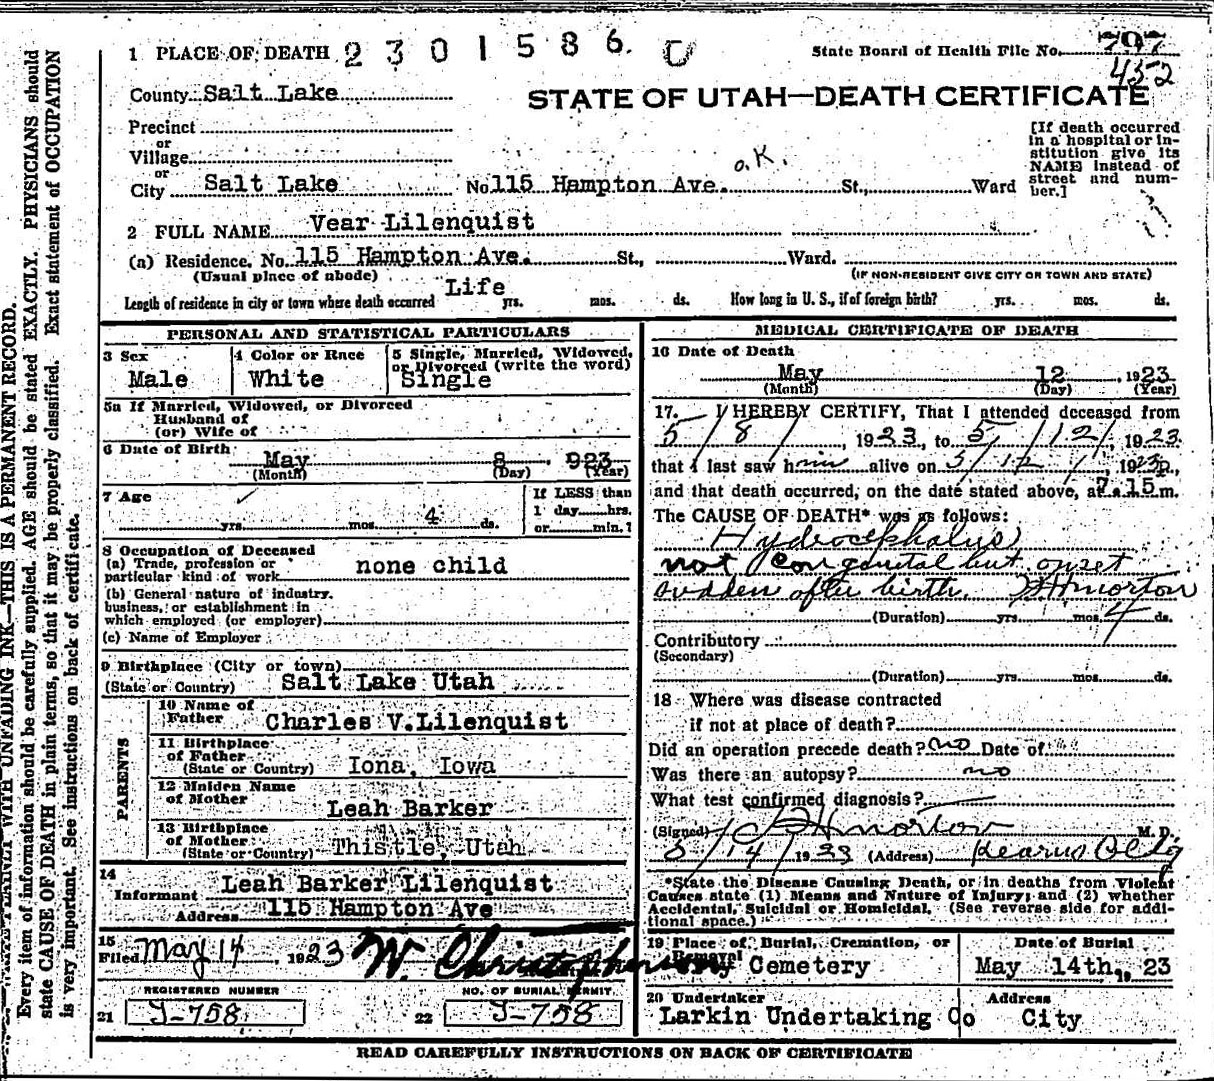 1 PLACE OF DEATH 2301586. C State Board of Health File No. 797
452
County Salt Lake
STATE OF UTAH—DEATH CERTIFICATE
Precinct
or
Village
or
City Salt Lake No. 115 Hampton Ave. St., Ward
o.K.
[If death occurred
in a hospital or in-
stitution give its
NAME instead of
street and num-
ber.]
2 FULL NAME Vear Lilenquist
(a) Residence. No. 115 Hampton Ave. St., Ward.
(Usual place of abode) (IF NON-RESIDENT GIVE CITY OR TOWN AND STATE)
Length of residence in city or town where death occurred Life yrs. mos. ds. How long in U. S., if of foreign birth? yrs. mos. ds.
PERSONAL AND STATISTICAL PARTICULARS
3 Sex
Male
4 Color or Race
White
5 Single, Married, Widowed,
or Divorced (write the word)
Single
5a If Married, Widowed, or Divorced
Husband of
(or) Wife of
6 Date of Birth
May 8 , 1923
(Month) (Day) (Year)
7 Age
yrs. mos. 4 ds.
If LESS than
1 day hrs.
or min.?
8 Occupation of Deceased
(a) Trade, profession or
particular kind of work none child
(b) General nature of industry,
business, or establishment in
which employed (or employer)
(c) Name of Employer
9 Birthplace (City or town)
(State or Country) Salt Lake Utah
PARENTS
10 Name of
Father Charles V. Lilenquist
11 Birthplace
of Father
(State or Country) Iona, Iowa
12 Maiden Name
of Mother Leah Barker
13 Birthplace
of Mother
(State or Country) Thistle, Utah
14
Informant Leah Barker Lilenquist
Address 115 Hampton Ave
15
Filed May 14, 1923 W. Christopherson
REGISTERED NUMBER NO. OF BURIAL PERMIT
21 J-758 22 J-758
MEDICAL CERTIFICATE OF DEATH
16 Date of Death
May 12 , 1923
(Month) (Day) (Year)
17. I HEREBY CERTIFY, That I attended deceased from
5/8/, 1923, to 5/12/, 1923.
that I last saw him alive on 5/12/, 1923,
and that death occurred, on the date stated above, at 7.15 m.
The CAUSE OF DEATH* was as follows:
Hydrocephalus
not Congenital but onset
sudden after birth.
(Duration) yrs. mos. 4 ds.
Contributory
(Secondary)
(Duration) yrs. mos. ds.
18 Where was disease contracted
if not at place of death?
Did an operation precede death? no Date of
Was there an autopsy? no
What test confirmed diagnosis?
(Signed) Morton M.D.
5/14, 1923 (Address) Kearns Bldg
*State the Disease Causing Death, or in deaths from Violent
Causes state (1) Means and Nature of Injury; and (2) whether
Accidental, Suicidal or Homicidal. (See reverse side for addi-
tional space.)
19 Place of Burial, Cremation, or
Removal City Cemetery
Date of Burial
May 14th, 1923
20 Undertaker
Larkin Undertaking Co
Address
City
READ CAREFULLY INSTRUCTIONS ON BACK OF CERTIFICATE
WRITE PLAINLY WITH UNFADING INK—THIS IS A PERMANENT RECORD.
Every item of information should be carefully supplied. AGE should be stated EXACTLY. PHYSICIANS should
state CAUSE OF DEATH in plain terms, so that it may be properly classified. Exact statement of OCCUPATION
is very important. See instructions on back of certificate.